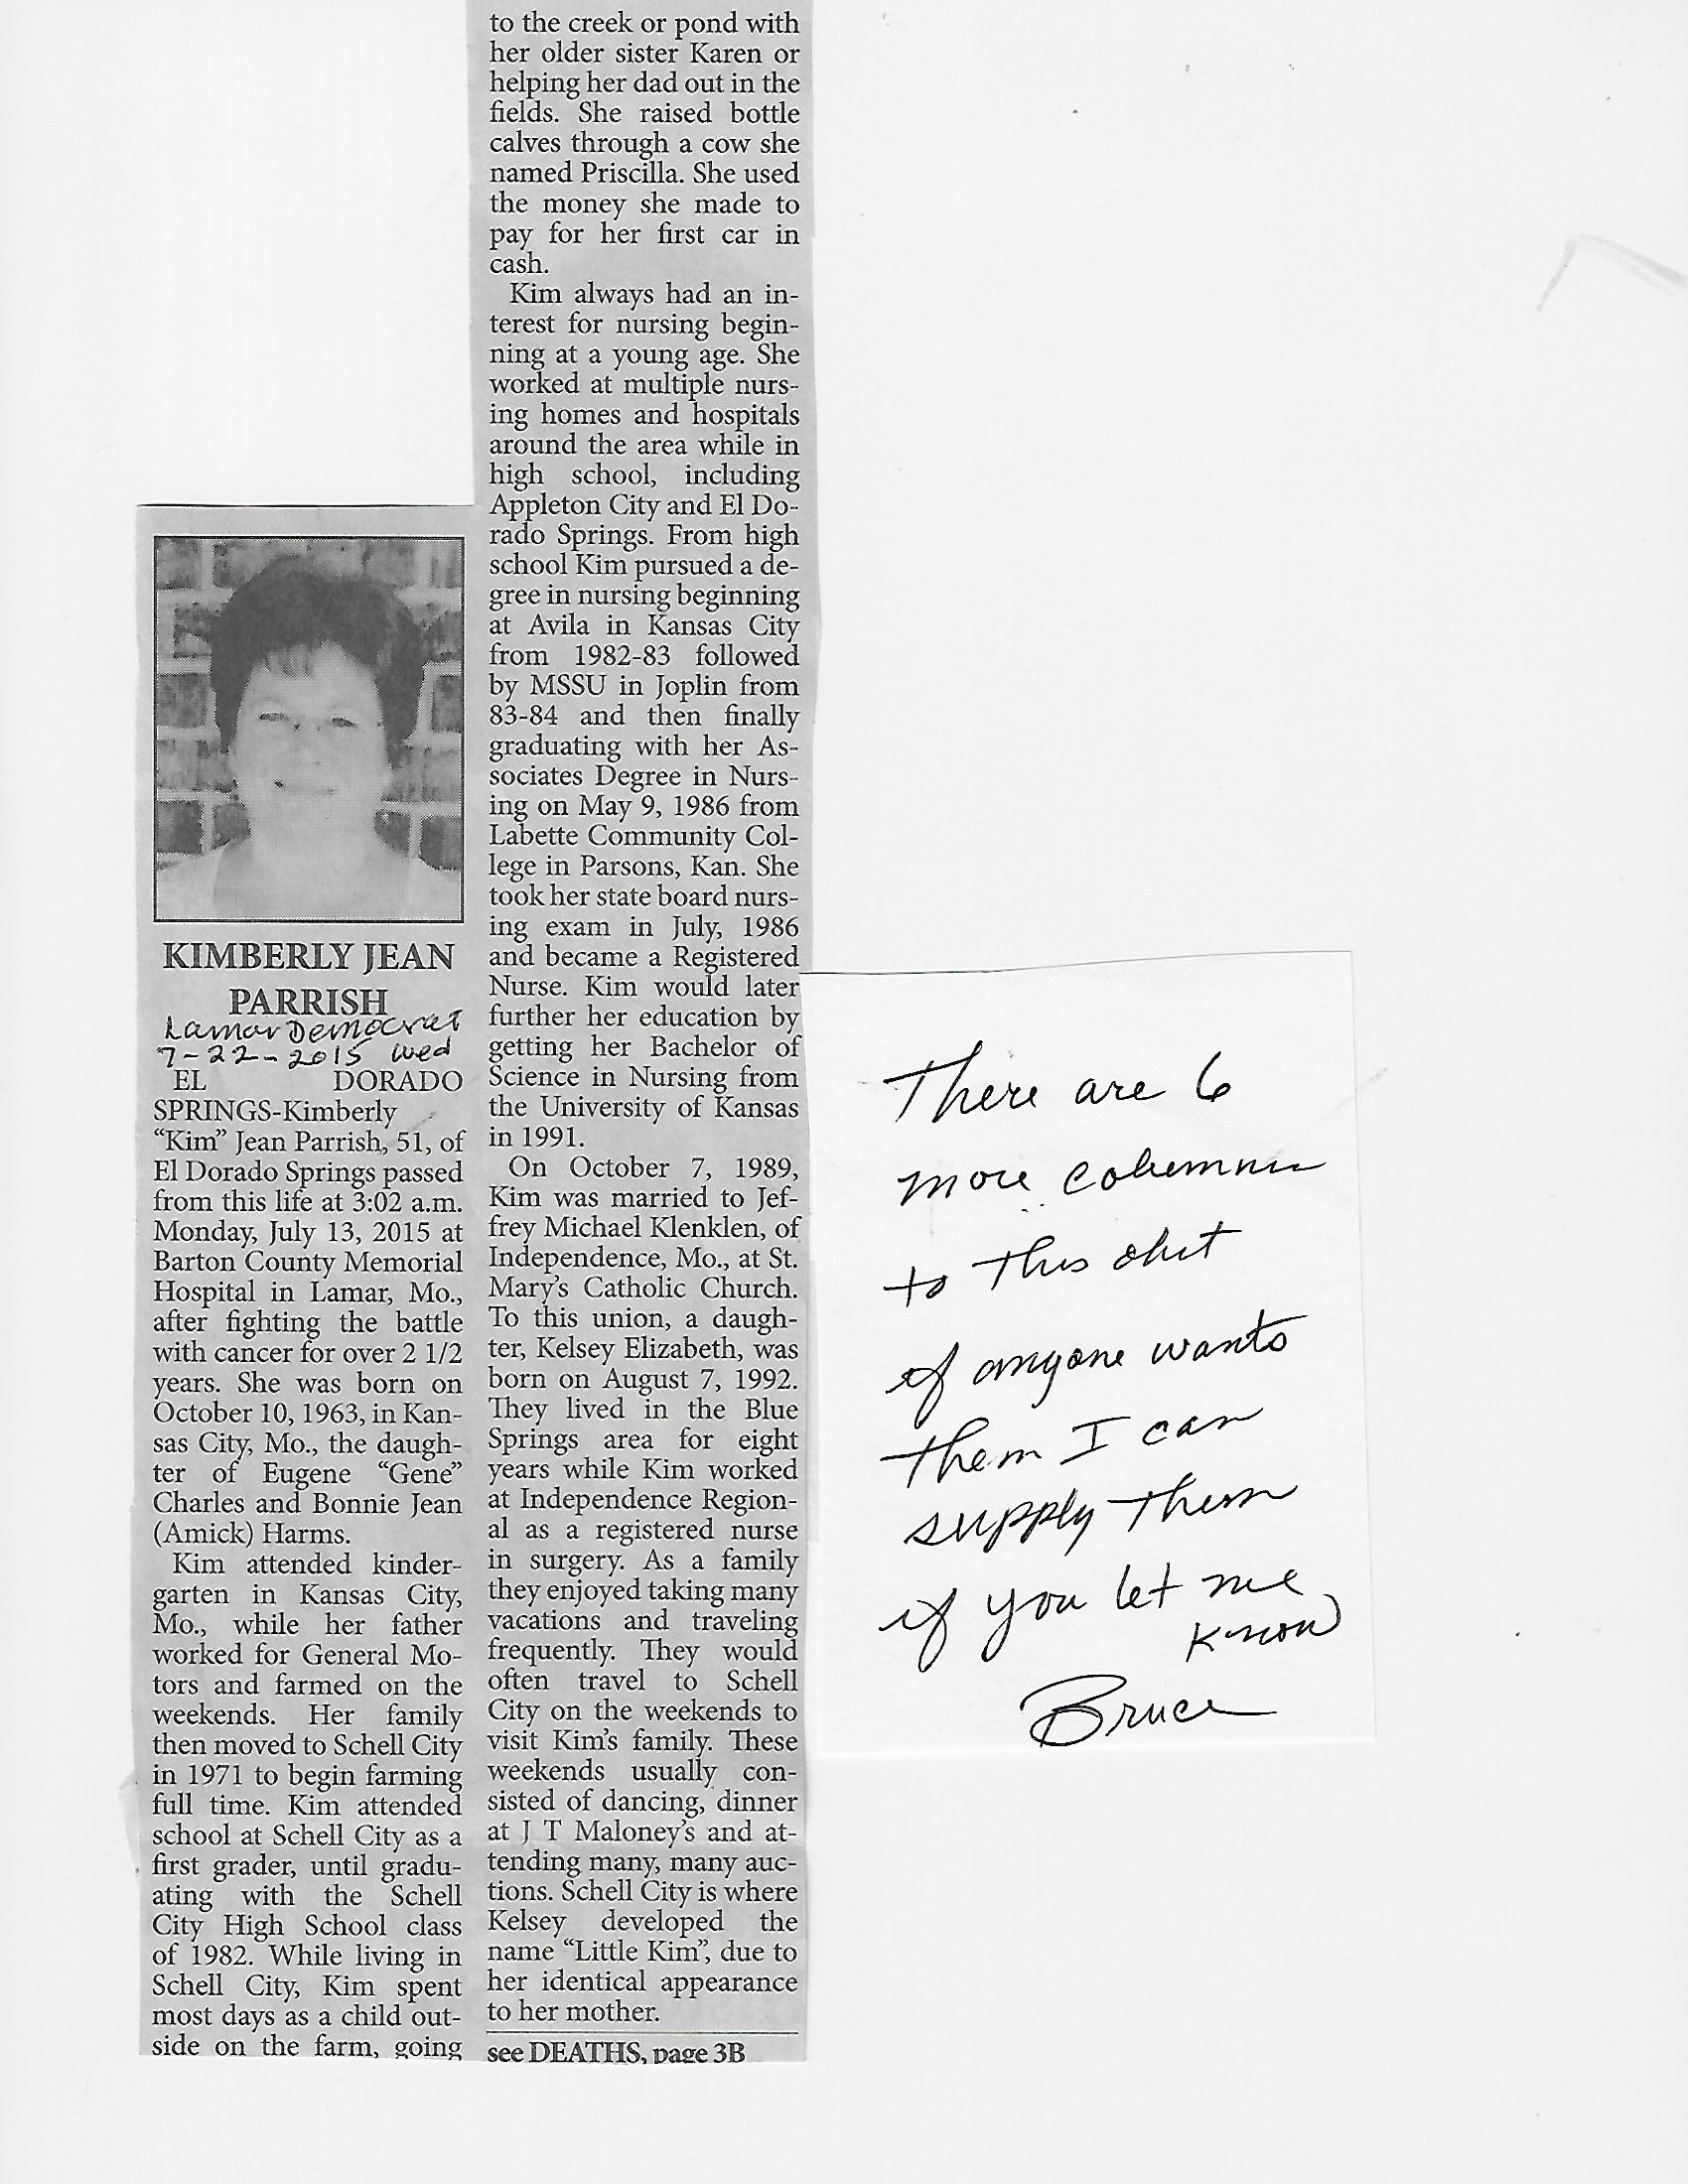 KIMBERLY JEAN
PARRISH
Lamar Democrat
7-22-2015 Wed
EL DORADO
SPRINGS-Kimberly
“Kim” Jean Parrish, 51, of
El Dorado Springs passed
from this life at 3:02 a.m.
Monday, July 13, 2015 at
Barton County Memorial
Hospital in Lamar, Mo.,
after fighting the battle
with cancer for over 2 1/2
years. She was born on
October 10, 1963, in Kan-
sas City, Mo., the daugh-
ter of Eugene “Gene”
Charles and Bonnie Jean
(Amick) Harms.
Kim attended kinder-
garten in Kansas City,
Mo., while her father
worked for General Mo-
tors and farmed on the
weekends. Her family
then moved to Schell City
in 1971 to begin farming
full time. Kim attended
school at Schell City as a
first grader, until gradu-
ating with the Schell
City High School class
of 1982. While living in
Schell City, Kim spent
most days as a child out-
side on the farm, going
to the creek or pond with
her older sister Karen or
helping her dad out in the
fields. She raised bottle
calves through a cow she
named Priscilla. She used
the money she made to
pay for her first car in
cash.
Kim always had an in-
terest for nursing begin-
ning at a young age. She
worked at multiple nurs-
ing homes and hospitals
around the area while in
high school, including
Appleton City and El Do-
rado Springs. From high
school Kim pursued a de-
gree in nursing beginning
at Avila in Kansas City
from 1982-83 followed
by MSSU in Joplin from
83-84 and then finally
graduating with her As-
sociates Degree in Nurs-
ing on May 9, 1986 from
Labette Community Col-
lege in Parsons, Kan. She
took her state board nurs-
ing exam in July, 1986
and became a Registered
Nurse. Kim would later
further her education by
getting her Bachelor of
Science in Nursing from
the University of Kansas
in 1991.
On October 7, 1989,
Kim was married to Jef-
frey Michael Klenklen, of
Independence, Mo., at St.
Mary’s Catholic Church.
To this union, a daugh-
ter, Kelsey Elizabeth, was
born on August 7, 1992.
They lived in the Blue
Springs area for eight
years while Kim worked
at Independence Region-
al as a registered nurse
in surgery. As a family
they enjoyed taking many
vacations and traveling
frequently. They would
often travel to Schell
City on the weekends to
visit Kim’s family. These
weekends usually con-
sisted of dancing, dinner
at J T Maloney’s and at-
tending many, many auc-
tions. Schell City is where
Kelsey developed the
name “Little Kim”, due to
her identical appearance
to her mother.
see DEATHS, page 3B
There are 6
more columns
to this obit
if anyone wants
them I can
supply them
if you let me
know
Bruce